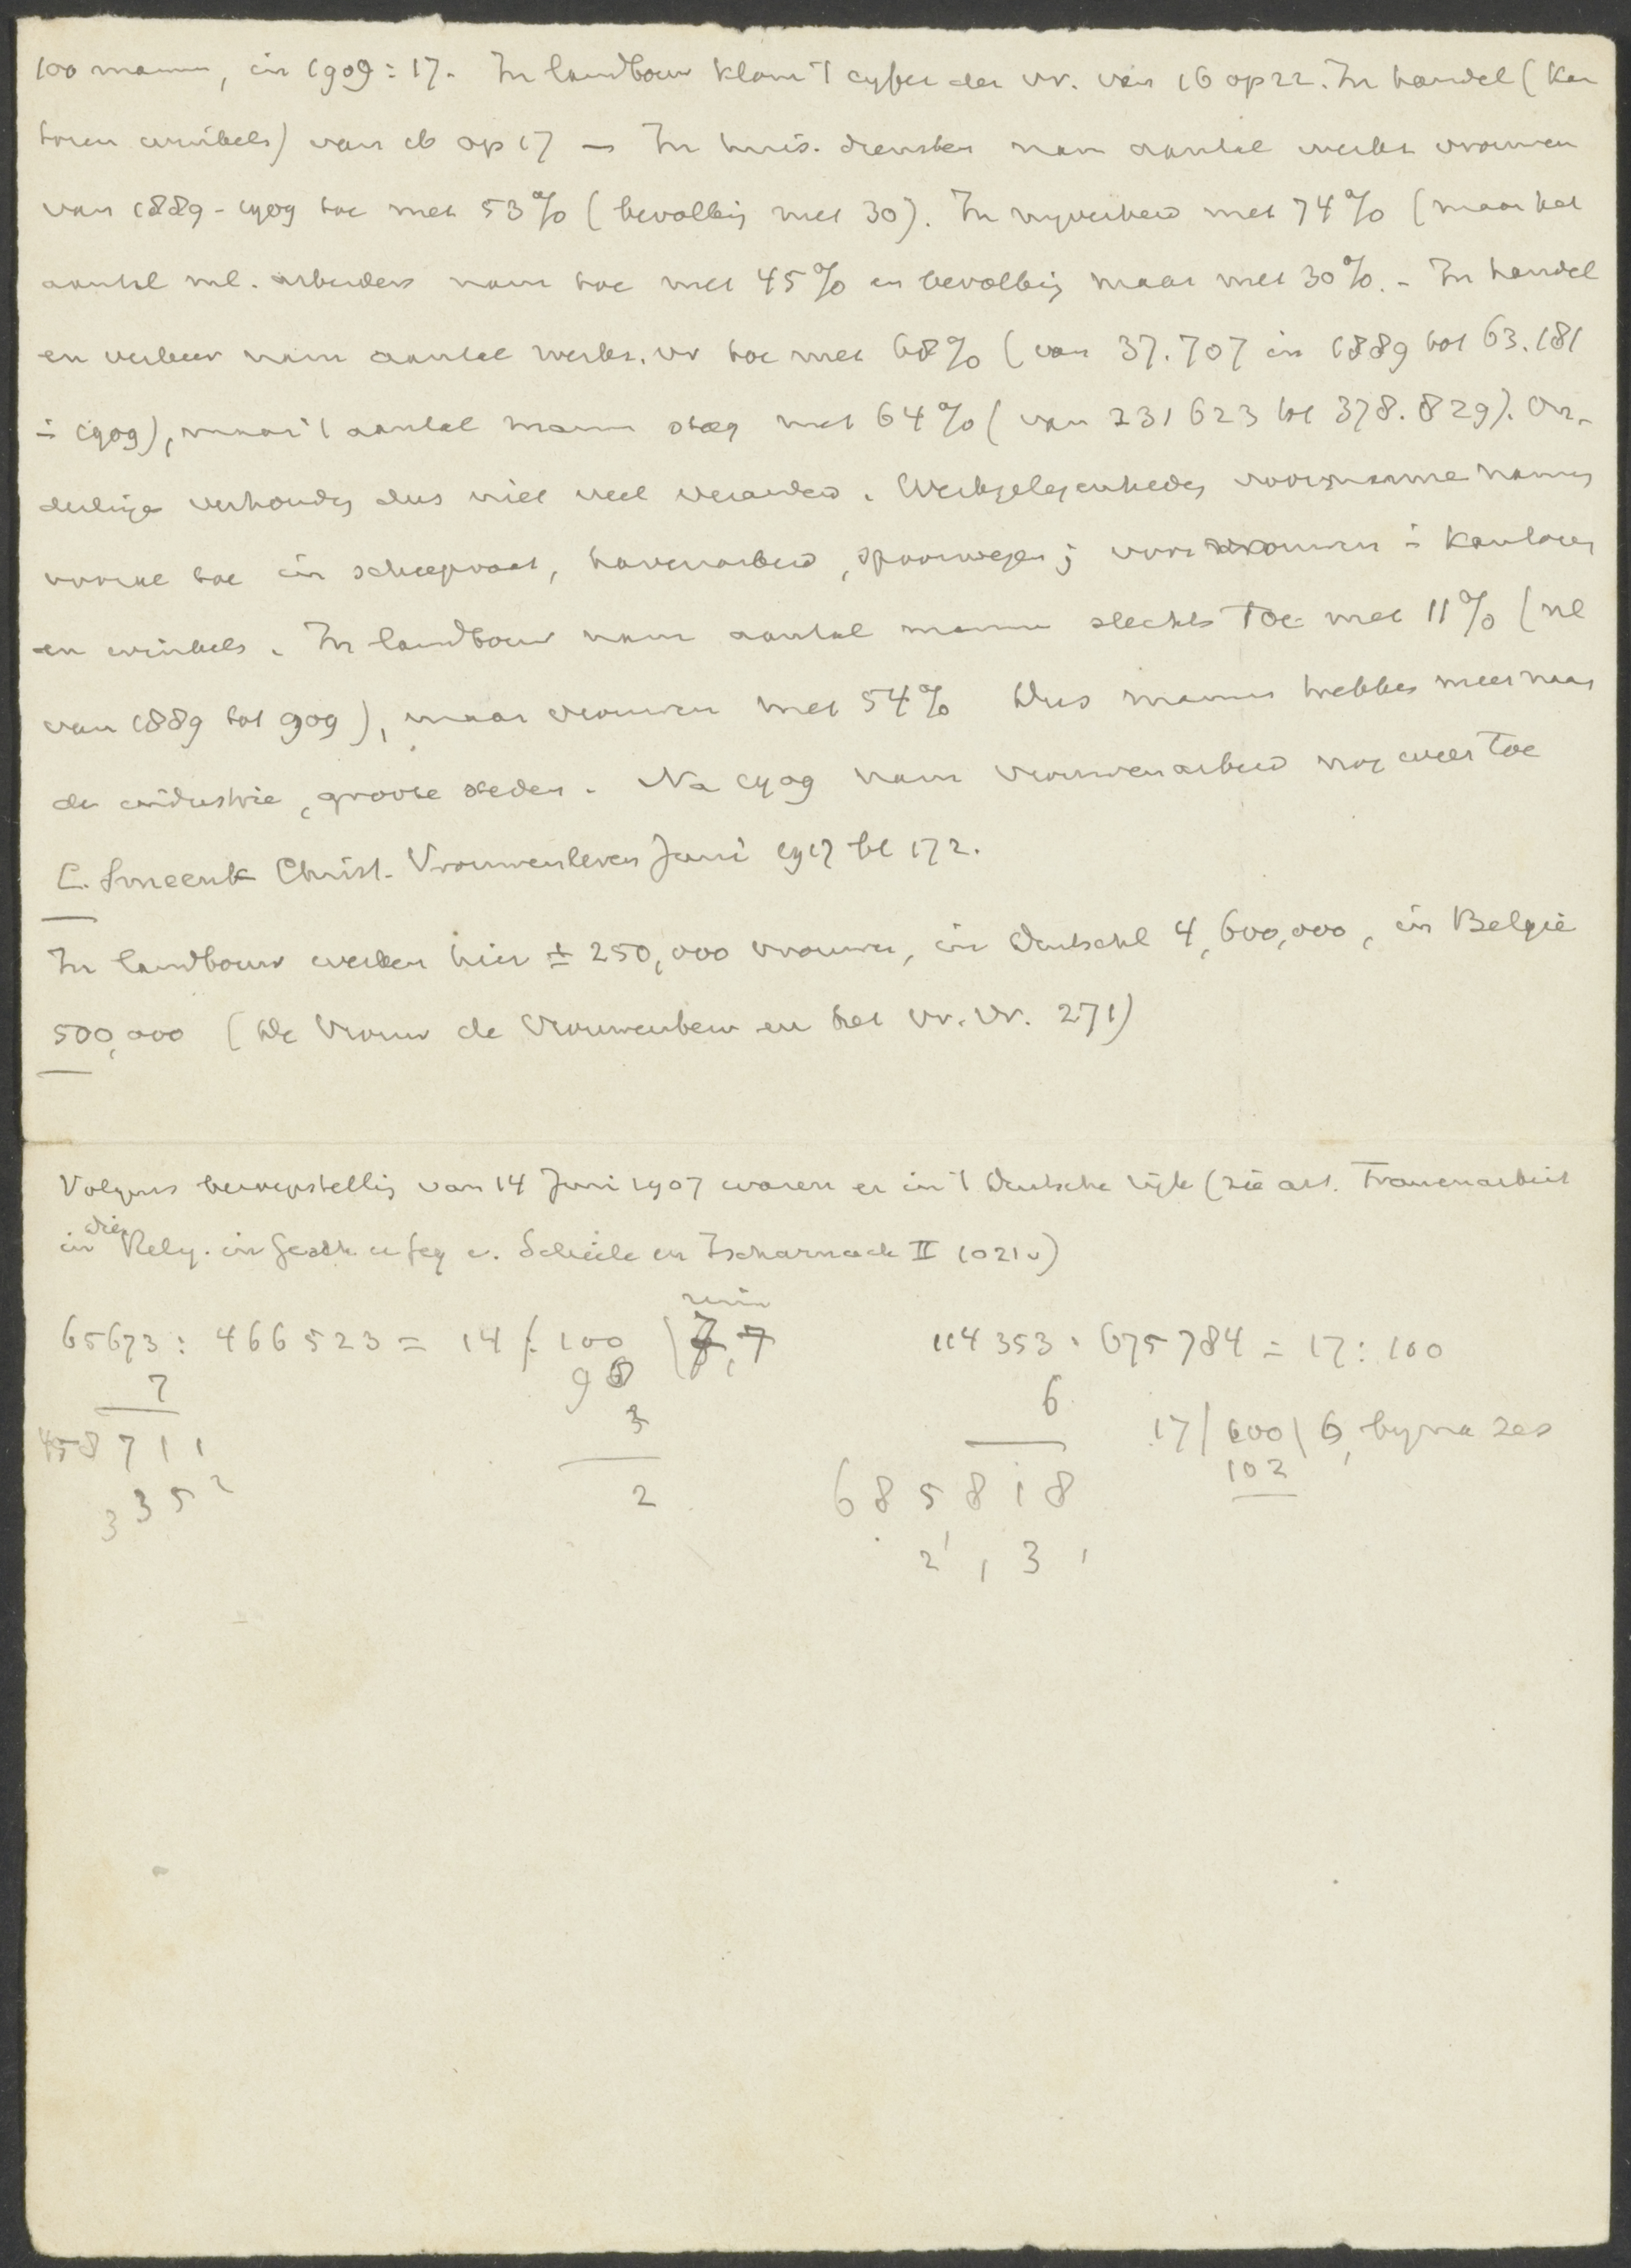 100 mannen, in 1909 = 17. In landbouw klom 't cyfer der vr. van 16 op 22. In handel (kan
toren winkels) van 16 op 17 — In huis. diensten nam aantal werkn vrouwen
van 1889-1909 toe met 53% (bevolking met 30). In nyverheid met 74% (maar het
aantal ml. arbeiders nam toe met 45% en bevolking maar met 30%. - In handel
en verkeer nam aantal werkn. vr toe met 68% (van 37.707 in 1889 tot 63.181
in 1909), maar 't aantal mannen steeg met 64% (van 231623 tot 378.829). On-
derlinge verhoudg dus niet veel veranderd. Werkgelegenheden voor mannen namen
vooral toe in scheepvaart, havenarbeid, spoorwegen; voor vrouwen in kantoren
en winkels. In landbouw nam aantal mannen slechts toe met 11% (nl
van 1889 tot 909), maar vrouwen met 54% Dus mannen trekken meer naar
de industrie, groote steden. Na 1909 nam vrouwenarbeid nog weer toe
C. Smeenk Christ. Vrouwenleven Juni 1917 bl 172.
In landbouw werken hier ± 250,000 vrouwen, in Duitschl 4,600,000, in België
500,000 (De Vrouw de Vrouwenbew en het vr. vr. 271)
Volgens beroepstelling van 14 Juni 1907 waren er in 't Duitsche rijk (zie art. Frauenarbeit
in die Relig. in Gesch u Geg v. Schiele en Zscharnack II 1021v)
65673 : 466523 = 14 : 100 7,7 114353 : 675784 = 17 : 100
7 98 6 17/100\6, byna zes
458711 3 685818 102
3352 2
2 1 3 1